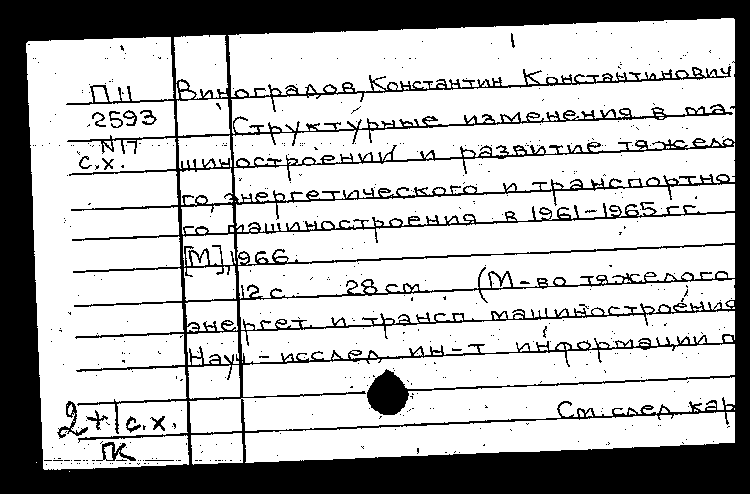 П11 Виноградов, Константин Константинович.
2593 Структурные изменения в ма-
N17
с.х. шиностроении и развитие тяжело-
го, энергетического и транспортно-
го машиностроения в 1961-1965 гг.
[М.], 1966.
12 с. 28 см. (М-во тяжелого
энергет. и трансп. машиностроения
Науч.-исслед. ин-т информации п
См. след. кар
2+1 с.х.
ГК